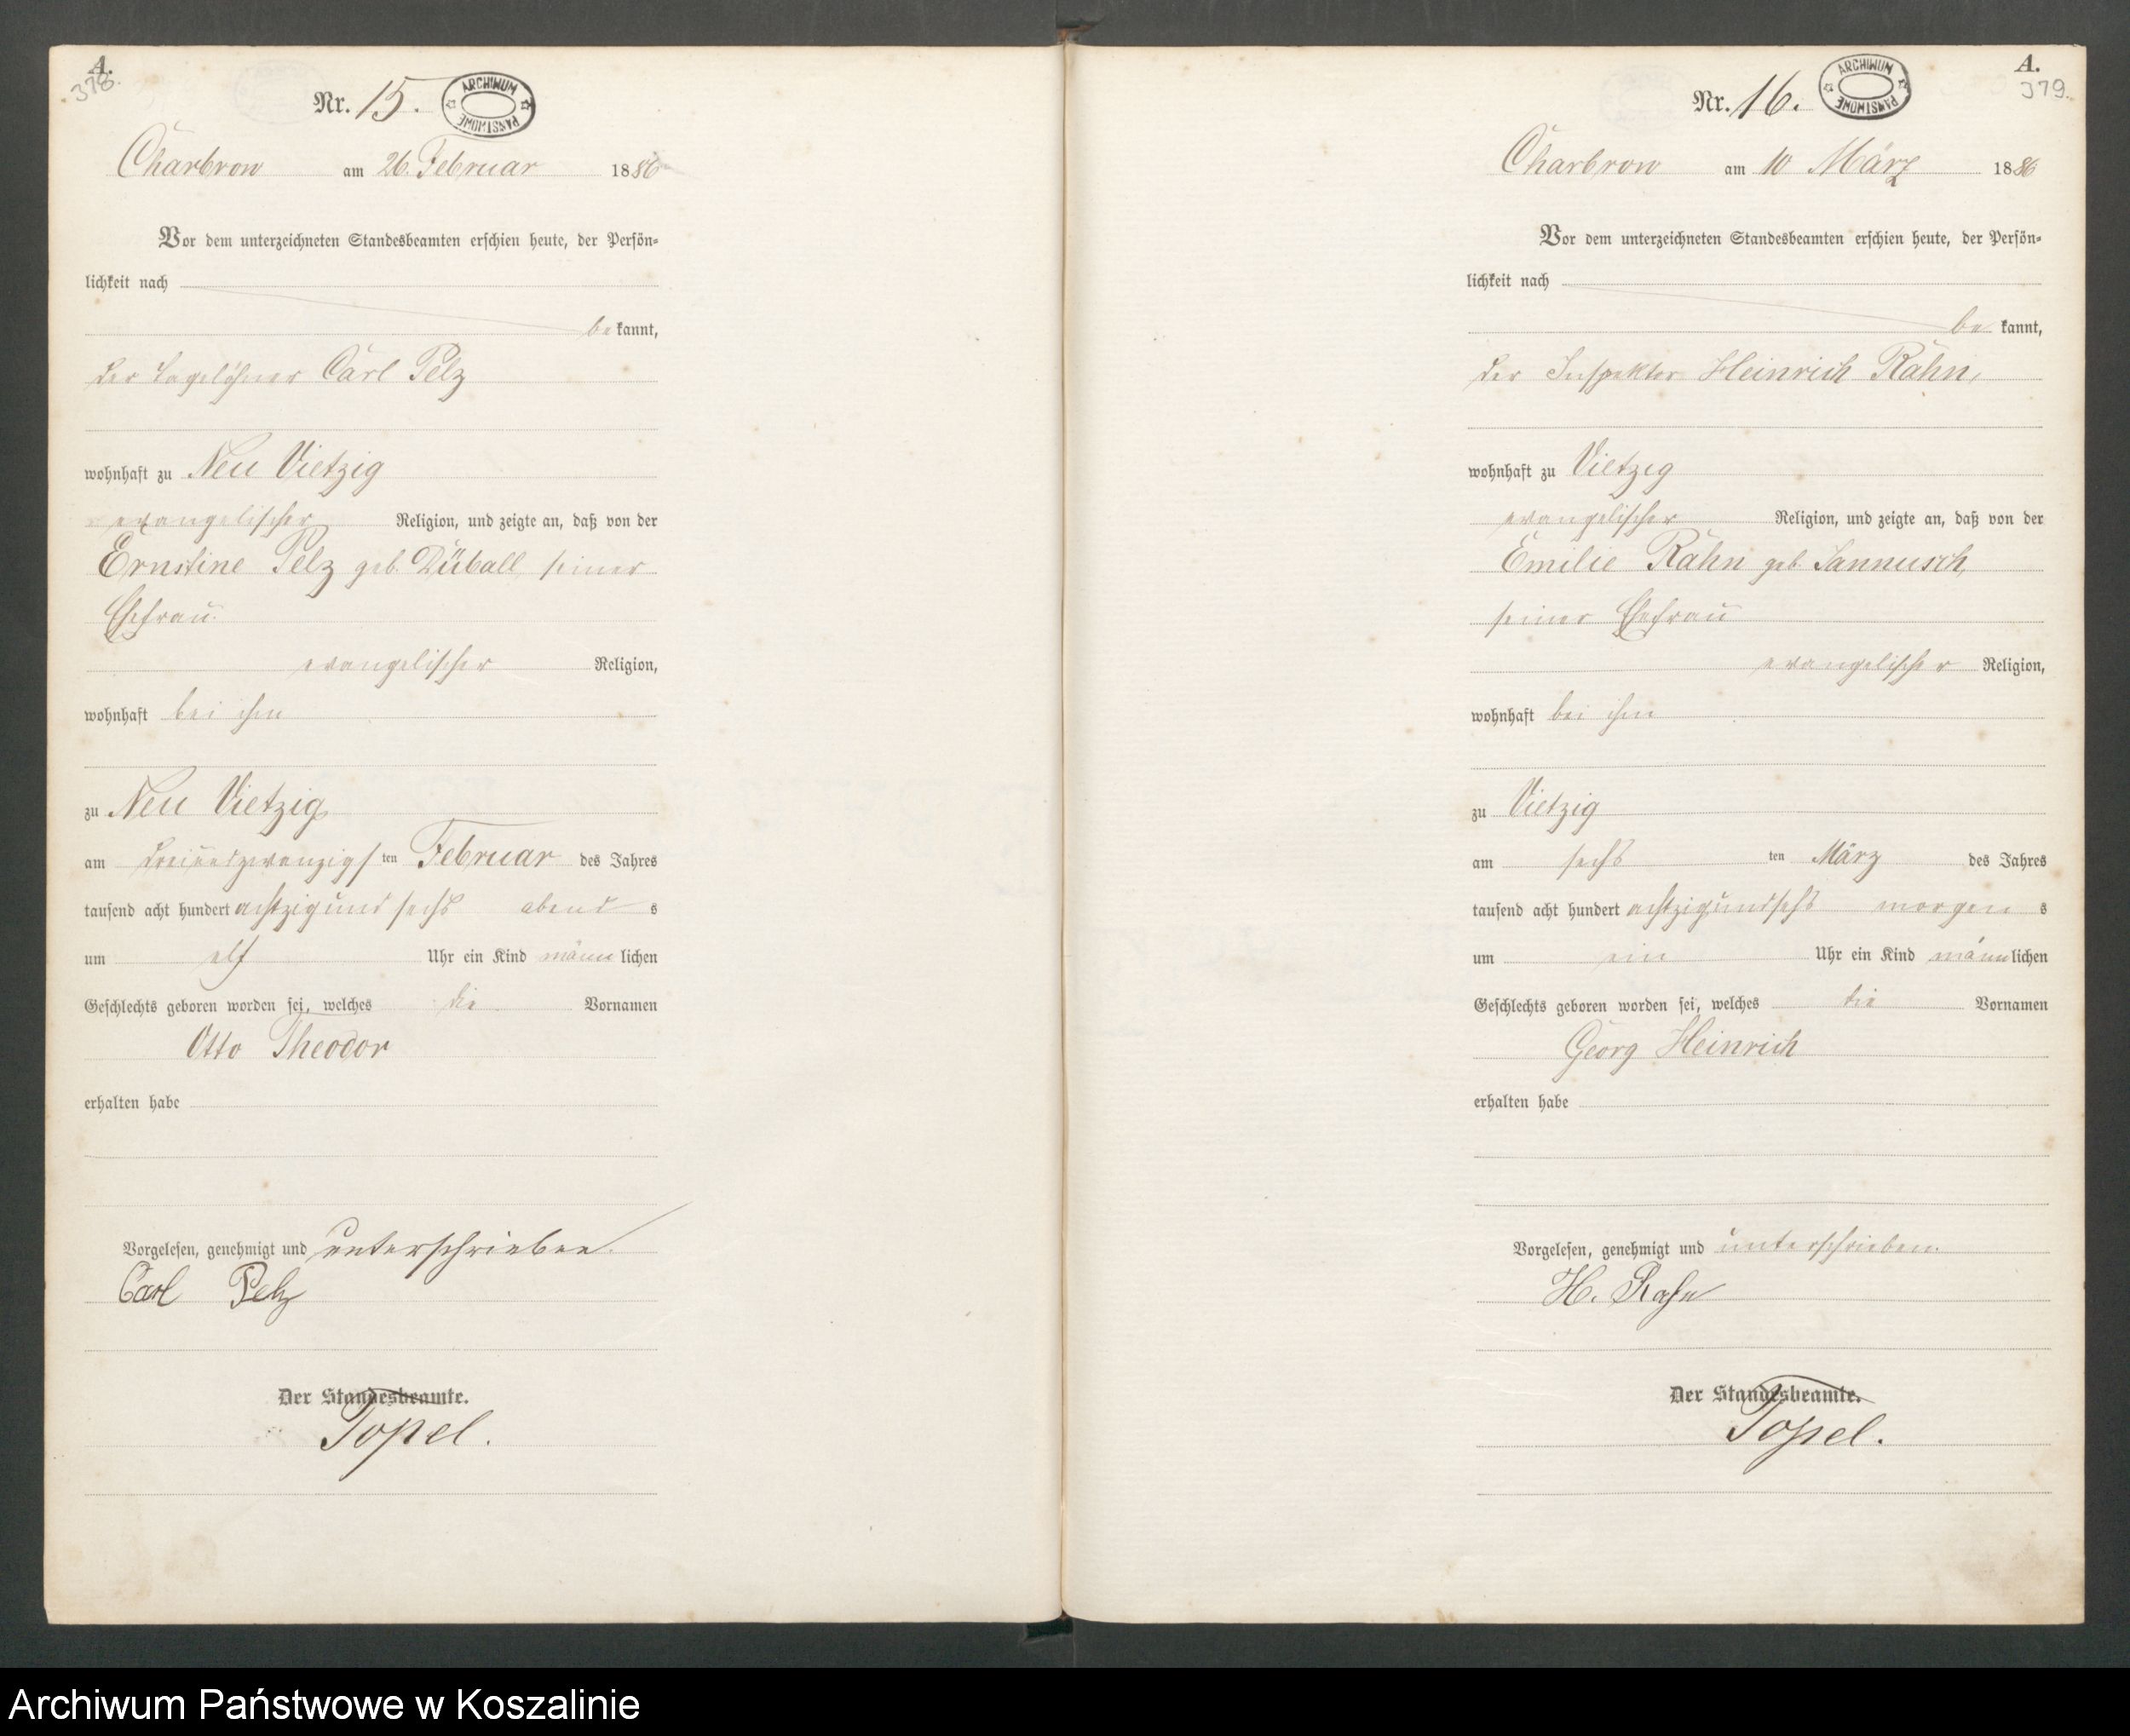 A.
378.
Nr. 15.
ARCHIWUM PAŃSTWOWE
Charbrow am 26. Februar 1886
Vor dem unterzeichneten Standesbeamten erschien heute, der Persön-
lichkeit nach
be kannt,
der Tagelöhner Carl Pelz
wohnhaft zu Neu Vietzig
evangelischer Religion, und zeigte an, daß von der
Ernstine Pelz geb. Düball, seiner
Ehefrau
evangelischer Religion,
wohnhaft bei ihm
zu Neu Vietzig
am dreiundzwanzigsten Februar des Jahres
tausend acht hundert achtzig und sechs abends
um elf Uhr ein Kind männlichen
Geschlechts geboren worden sei, welches die Vornamen
Otto Theodor
erhalten habe
Vorgelesen, genehmigt und unterschrieben.
Carl Pelz
Der Standesbeamte.
Topel.
A.
379.
Nr. 16.
ARCHIWUM PAŃSTWOWE
Charbrow am 10 März 1886
Vor dem unterzeichneten Standesbeamten erschien heute, der Persön-
lichkeit nach
be kannt,
der Inspektor Heinrich Rahn,
wohnhaft zu Vietzig
evangelischer Religion, und zeigte an, daß von der
Emilie Rahn geb. Jannusch,
seiner Ehefrau
evangelischer Religion,
wohnhaft bei ihm
zu Vietzig
am sechsten März des Jahres
tausend acht hundert achtzig und sechs morgens
um ein Uhr ein Kind männlichen
Geschlechts geboren worden sei, welches die Vornamen
Georg Heinrich
erhalten habe
Vorgelesen, genehmigt und unterschrieben.
H. Rahn
Der Standesbeamte.
Topel.
Archiwum Państwowe w Koszalinie